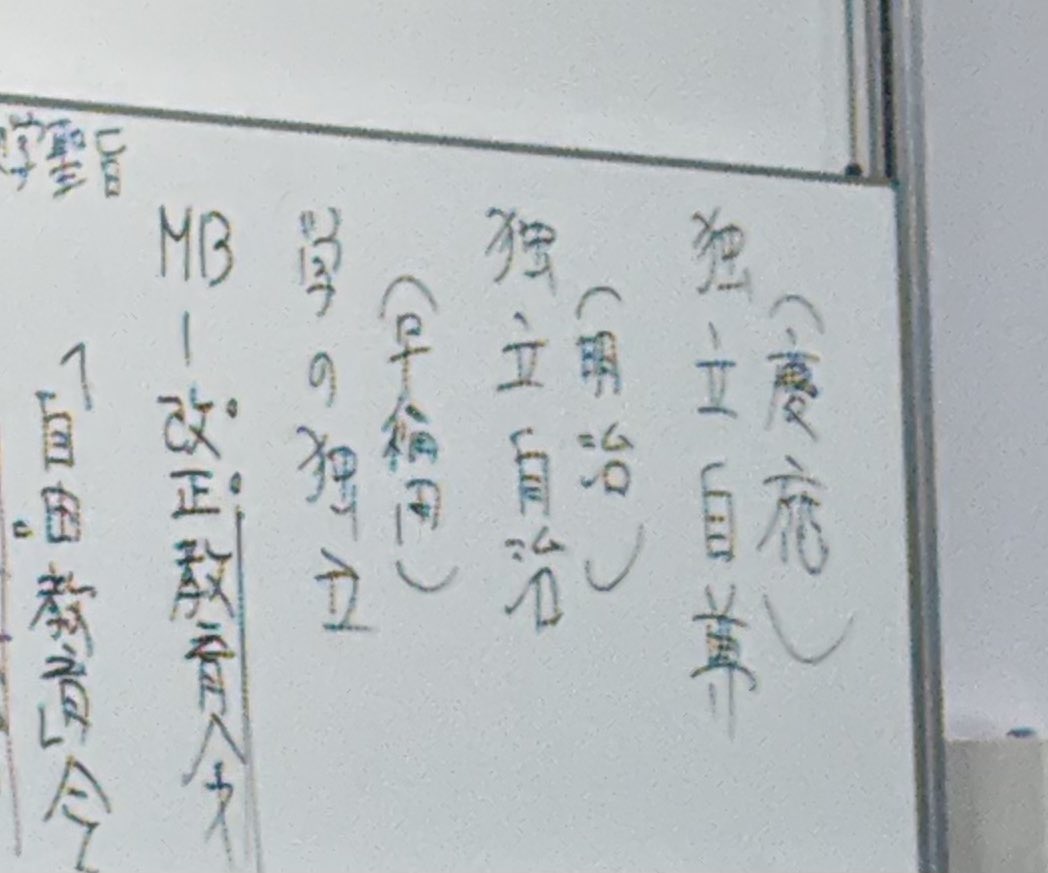 （慶応）
独立自尊
（明治）
独立自治
（早稲田）
学の独立
MB－改正教育令
「自由教育」令
学聖旨